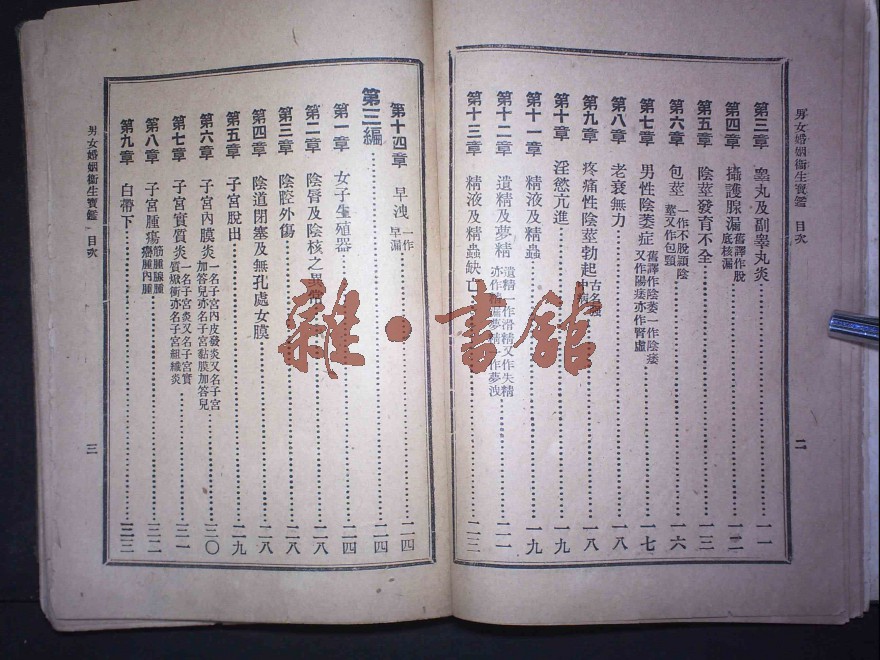 男女婚姻衞生寶鑑 目次 二
第三章 睾丸及副睾丸炎 一一
第四章 攝護腺漏 舊譯作脫底核漏 一二
第五章 陰莖發育不全 一三
第六章 包莖 一作不脫頭陰莖又作包頸 一六
第七章 男性陰萎症 舊譯作陰萎一作陰痿又作陽痿亦作腎虛 一七
第八章 老衰無力 一八
第九章 疼痛性陰莖勃起 古名 一八
第十章 淫慾亢進 一九
第十一章 精液及精蟲 一九
第十二章 遺精及夢精 遺精一作滑精又作失精 亦作 夢精 作夢洩 二一
第十三章 精液及精蟲缺亡 二三
第十四章 早洩 一作早漏 二四
第三編 二四
第一章 女子生殖器 二四
第二章 陰唇及陰核之異常 二八
第三章 陰腔外傷 二八
第四章 陰道閉塞及無孔處女膜 二八
第五章 子宮脫出 二九
第六章 子宮內膜炎 一名子宮內皮發炎又名子宮加答兒亦名子宮黏膜加答兒 三〇
第七章 子宮實質炎 一名子宮炎又名子宮實質焮衝亦名子宮組織炎 三一
第八章 子宮腫瘍 筋腫腺腫癌腫肉腫 三二
第九章 白帶下 三三
男女婚姻衞生寶鑑 目次 三
雜·書館